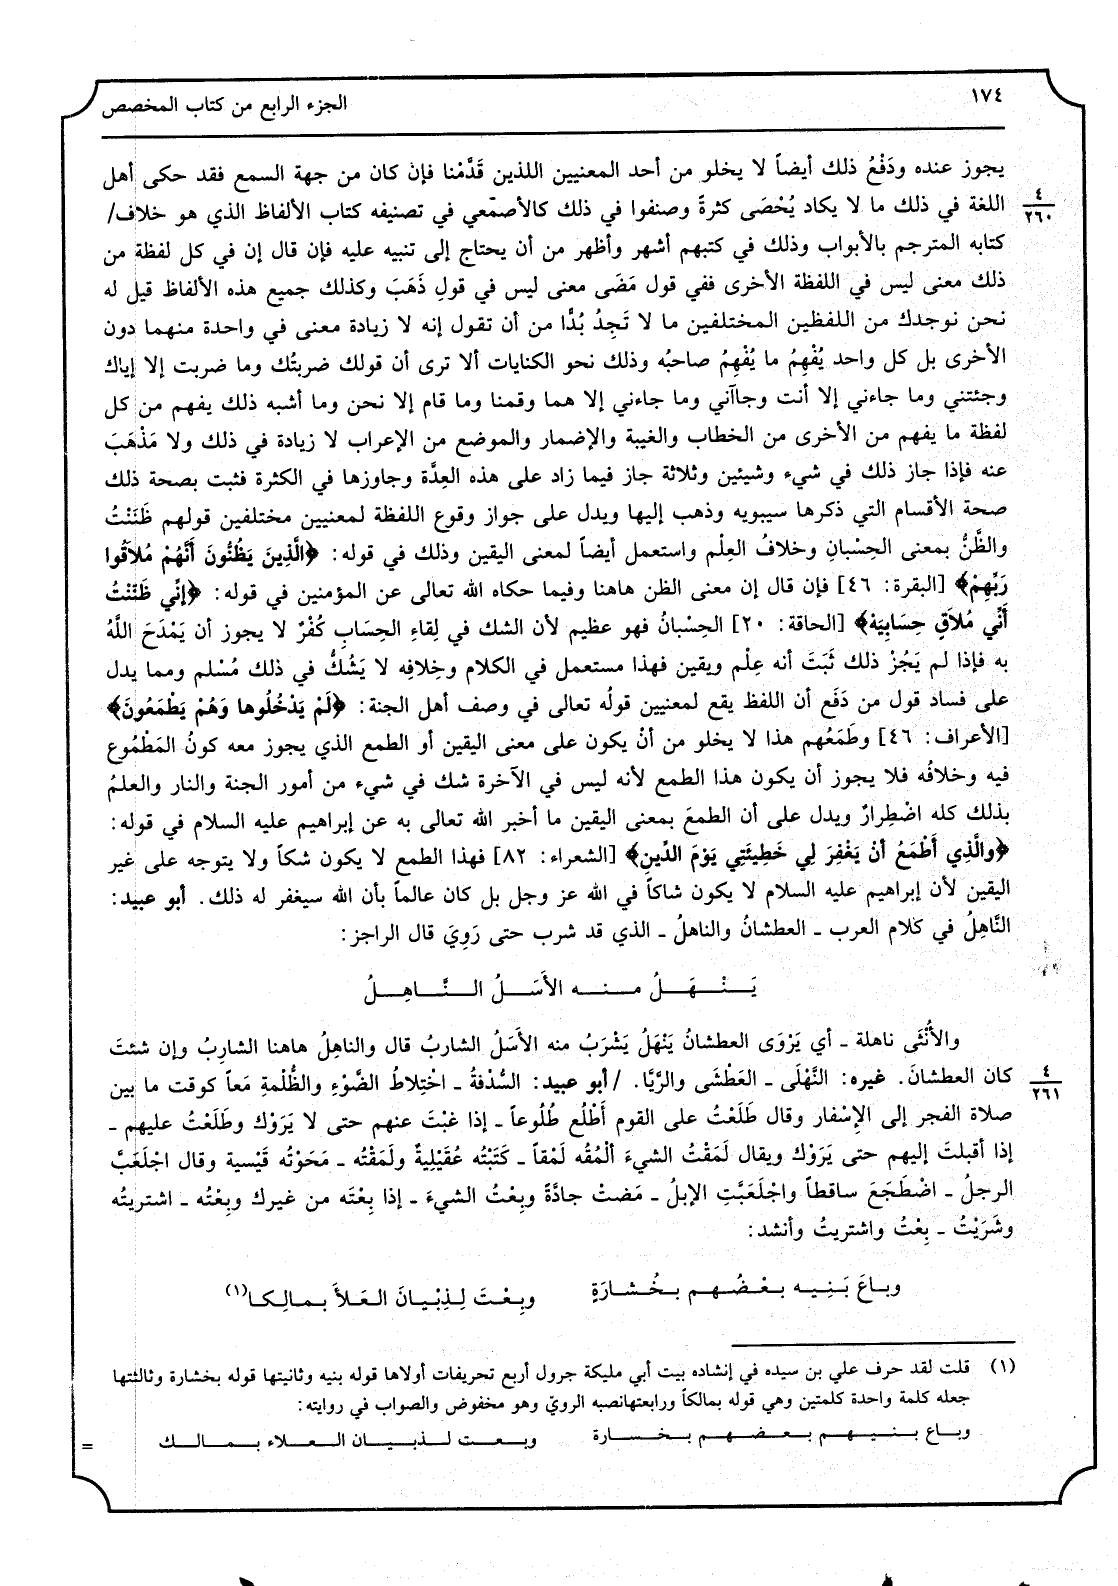 ١٧٤
الجزء الرابع من كتاب المخصص
يجوز عنده ودَفْعُ ذلك أيضاً لا يخلو من أحد المعنيين اللذين قَدَّمْنا فإن كان من جهة السمع فقد حكى أهل
اللغة في ذلك ما لا يكاد يُحْصَى كثرةً وصنفوا في ذلك كالأصمّعي في تصنيفه كتاب الألفاظ الذي هو خلاف/
٤
٢٦٠
كتابه المترجم بالأبواب وذلك في كتبهم أشهر وأظهر من أن يحتاج إلى تنبيه عليه فإن قال إن في كل لفظة من
ذلك معنى ليس في اللفظة الأخرى ففي قول مَضَى معنى ليس في قولِ ذَهَبَ وكذلك جميع هذه الألفاظ قيل له
نحن نوجدك من اللفظين المختلفين ما لا تَجِدُ بُدًّا من أن تقول إنه لا زيادة معنى في واحدة منهما دون
الأخرى بل كل واحد يُفْهِمُ ما يُفْهِمُ صاحبُه وذلك نحو الكنايات ألا ترى أن قولك ضربتُك وما ضربت إلا إياك
وجئتني وما جاءني إلا أنت وجاآني وما جاءني إلا هما وقمنا وما قام إلا نحن وما أشبه ذلك يفهم من كل
لفظة ما يفهم من الأخرى من الخطاب والغيبة والإضمار والموضع من الإعراب لا زيادة في ذلك ولا مَذْهَبَ
عنه فإذا جاز ذلك في شيء وشيئين وثلاثة جاز فيما زاد على هذه العِدَّة وجاوزها في الكثرة فثبت بصحة ذلك
صحة الأقسام التي ذكرها سيبويه وذهب إليها ويدل على جواز وقوع اللفظة لمعنيين مختلفين قولهم ظَنَنْتُ
والظَّنُّ بمعنى الحِسْبانِ وخلافُ العِلْم واستعمل أيضاً لمعنى اليقين وذلك في قوله: ﴿الَّذِينَ يَظُنُّونَ أَنَّهُمْ مُلاَقُوا
رَبِّهِمْ﴾ [البقرة: ٤٦] فإن قال إن معنى الظن هاهنا وفيما حكاه الله تعالى عن المؤمنين في قوله: ﴿إنِّي ظَنَنْتُ
أَنِّي مُلاَقٍ حِسَابِيَهْ﴾ [الحاقة: ٢٠] الحِسْبانُ فهو عظيم لأن الشك في لِقاءِ الحِسَابِ كُفْرٌ لا يجوز أن يَمْدَحَ اللَّهُ
به فإذا لم يَجُزْ ذلك ثَبَتَ أنه عِلْم ويقين فهذا مستعمل في الكلام وخِلافِه لا يَشُكُّ في ذلك مُسْلم ومما يدل
على فساد قول من دَفَع أن اللفظ يقع لمعنيين قولُه تعالى في وصف أهل الجنة: ﴿لَمْ يَدْخُلُوها وَهُمْ يَطْمَعُونَ﴾
[الأعراف: ٤٦] وطَمَعُهم هذا لا يخلو من أنْ يكون على معنى اليقين أو الطمع الذي يجوز معه كونُ المَطْمُوعِ
فيه وخلافُه فلا يجوز أن يكون هذا الطمع لأنه ليس في الآخرة شك في شيء من أمور الجنة والنار والعلمُ
بذلك كله اضْطِرارٌ ويدل على أن الطمعَ بمعنى اليقين ما أخبر الله تعالى به عن إبراهيم عليه السلام في قوله:
﴿والَّذِي أَطْمَعُ أنْ يَغْفِرَ لي خَطِيئَتِي يَوْمَ الدِّينِ﴾ [الشعراء: ٨٢] فهذا الطمع لا يكون شكاً ولا يتوجه على غير
اليقين لأن إبراهيم عليه السلام لا يكون شاكاً في الله عز وجل بل كان عالماً بأن الله سيغفر له ذلك. أبو عبيد:
النَّاهِلُ في كلام العرب ـ العطشانُ والناهلُ ـ الذي قد شرب حتى رَوِيَ قال الراجز:
يَـنْـهَـلُ مـنـه الأَسَـلُ الـنَّـاهِـلُ
والأُنْثَى ناهلة ـ أي يَرْوَى العطشانُ يَنْهَلُ يَشْرَبُ منه الأَسَلُ الشاربُ قال والناهِلُ هاهنا الشارِبُ وإن شئتَ
كان العطشانَ. غيره: النَّهْلَى ـ العَطْشَى والرَّيَّا. /أبو عبيد: السُّدْفةُ ـ اخْتِلاطُ الضَّوْءِ والظُّلْمةِ مَعاً كوقت ما بين
٤
٢٦١
صلاة الفجر إلى الإِسْفار وقال طَلَعْتُ على القوم أَطْلُع طُلُوعاً ـ إذا غبْتَ عنهم حتى لا يَرَوْك وطَلَعْتُ عليهم ـ
إذا أقبلتَ إليهم حتى يَرَوْك ويقال لَمَقْتُ الشيءَ ألْمُقُه لَمْقاً ـ كَتَبْتُه عُقَيْلِيةٌ ولَمَقْتُه ـ مَحَوْتُه قَيْسية وقال اجْلَعَبَّ
الرجلُ ـ اضْطَجَعَ ساقطاً واجْلَعَبَّتِ الإبلُ ـ مَضتْ جادَّةً وبِعْتُ الشيءَ ـ إذا بِعْتَه من غيرك وبِعْتُه ـ اشتريتُه
وشَرَيْتُ ـ بِعْتُ واشتريتُ وأنشد:
وبـاعَ بَـنِـيـه بـعْـضُـهـم بـخُـشـارَةٍ    وبِـعْـتَ لِـذِبْـيـانَ الـعَـلاَ بـمـالِـكـا(١)
(١) قلت لقد حرف علي بن سيده في إنشاده بيت أبي مليكة جرول أربع تحريفات أولاها قوله بنيه وثانيتها قوله بخشارة وثالثتها
جعله كلمة واحدة كلمتين وهي قوله بمالكاً ورابعتهانصبه الرويّ وهو مخفوض والصواب في روايته:
وبـاع بـنـيـهـم بـعـضـهـم بـخـسـارة    وبـعـت لـذبـيـان الـعـلاء بـمـالـك
=